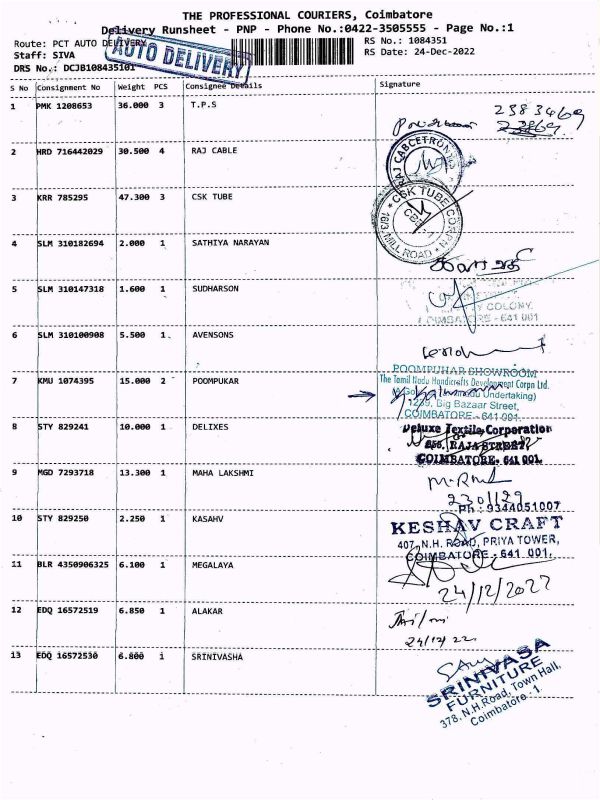 THE PROFESSIONAL COURIERS, Coimbatore
Delivery Runsheet - PNP - Phone No.:0422-3505555 - Page No.:1
Route: PCT AUTO DELIVERY
RS No.: 1084351
Staff: SIVA
RS Date: 24-Dec-2022
DRS No.: DCJB108435101
AUTO DELIVERY
S No Consignment No Weight PCS Consignee Details Signature
1 PMK 1208653 36.000 3 T.P.S
2383469
2 HRD 716442029 30.500 4 RAJ CABLE
RAJ CABCETRONICS
3 KRR 785295 47.300 3 CSK TUBE
CSK TUBE
163, MILL ROAD
4 SLM 310182694 2.000 1 SATHIYA NARAYAN
5 SLM 310147318 1.600 1 SUDHARSON
COLONY,
COIMBATORE - 641 001
6 SLM 310100908 5.500 1 AVENSONS
7 KMU 1074395 15.000 2 POOMPUKAR
POOMPUHAR SHOWROOM
The Tamil Nadu Handicrafts Development Corpn Ltd.
Undertaking)
Big Bazaar Street,
COIMBATORE - 641 001.
8 STY 829241 10.000 1 DELIXES
Deluxe Textile Corporation
RAJA STREET,
COIMBATORE - 641 001.
9 MGD 7293718 13.300 1 MAHA LAKSHMI
2301129
Ph : 9344051007
10 STY 829250 2.250 1 KASAHV
KESHAV CRAFT
407, N.H. ROAD, PRIYA TOWER,
COIMBATORE - 641 001.
11 BLR 4350906325 6.100 1 MEGALAYA
24/12/2022
12 EDQ 16572519 6.850 1 ALAKAR
24/12/22
13 EDQ 16572530 6.800 1 SRINIVASHA
SRINIVASA
FURNITURE
378, N.H.Road, Town Hall,
Coimbatore - 1.